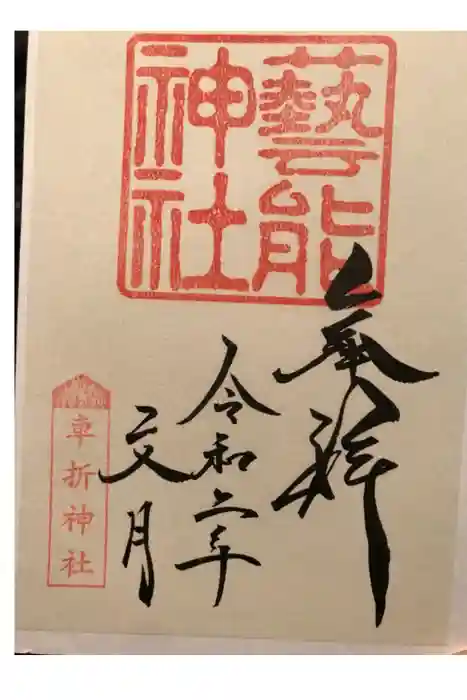 藝能
神社
奉拝
令和二年
文月
車折神社